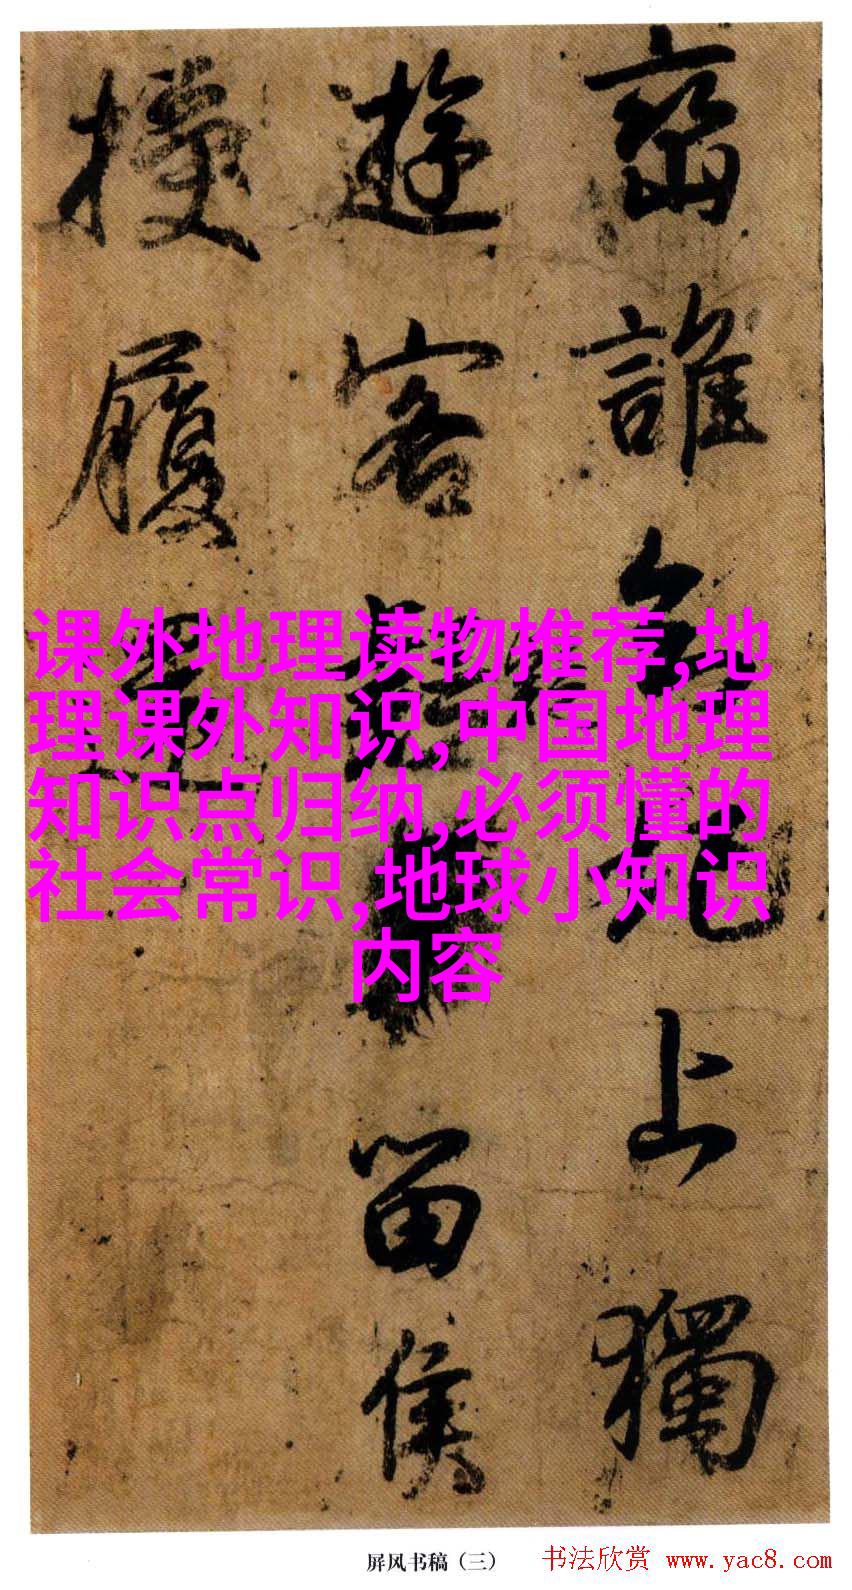 誰 上獨
遊客 留侯
履
课外地理读物推荐,地
理课外知识,中国地理
知识点归纳,必须懂的
社会常识,地球小知识
内容
屏风书稿(三)
书法欣赏 www.yac8.com